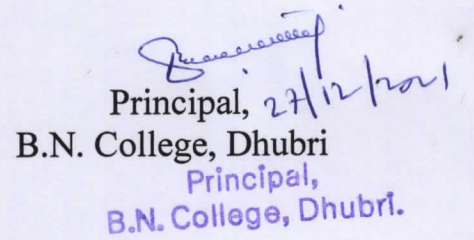 Principal, 27/12/2021
B.N. College, Dhubri
Principal,
B.N. College, Dhubri.